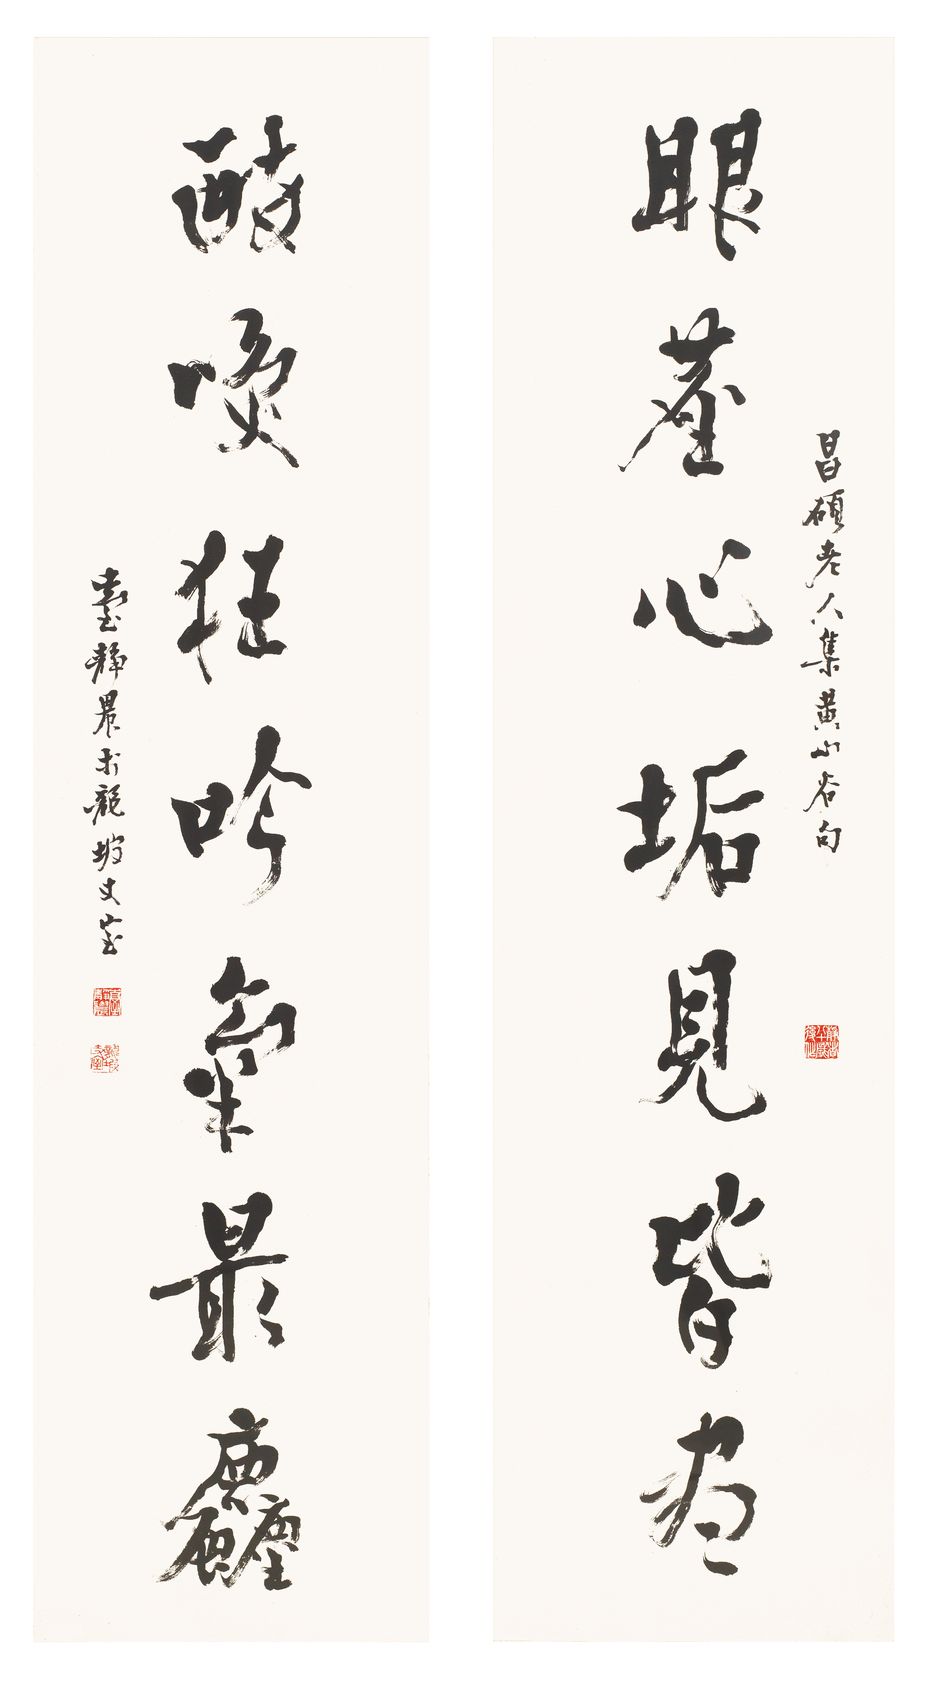 昌碩老人集黃山谷句
眼塵心垢見皆盡
醉喚狂吟氣最麤
臺靜農於龍坡丈室